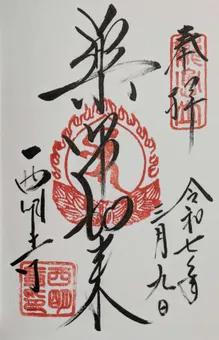 奉拝
令和七年三月九日
薬師如来
西明寺
西明寺印